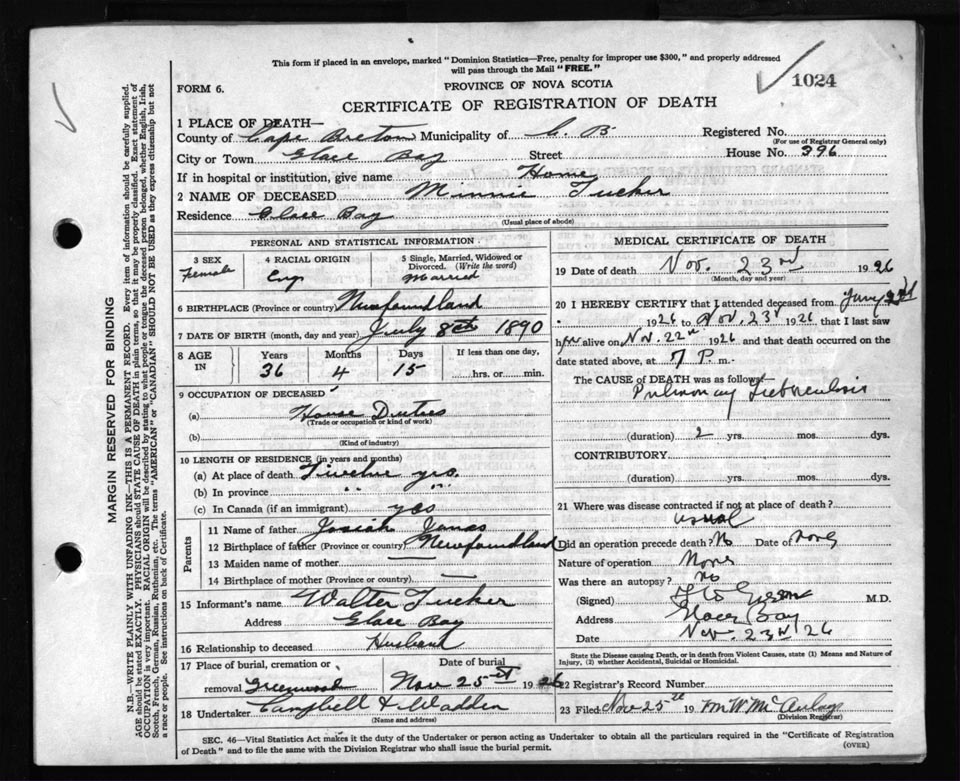 This form if placed in an envelope, marked "Dominion Statistics—Free, penalty for improper use $300," and properly addressed
will pass through the Mail "FREE."
1024
FORM 6.
PROVINCE OF NOVA SCOTIA
CERTIFICATE OF REGISTRATION OF DEATH
1 PLACE OF DEATH—
County of Cape Breton Municipality of C. B. Registered No.
(For use of Registrar General only)
City or Town Glace Bay Street House No. 396
If in hospital or institution, give name Home
2 NAME OF DECEASED Minnie Tucker
Residence Glace Bay
(Usual place of abode)
PERSONAL AND STATISTICAL INFORMATION
3 SEX Female
4 RACIAL ORIGIN Eng
5 Single, Married, Widowed or Divorced. (Write the word) Married
6 BIRTHPLACE (Province or country) Newfoundland
7 DATE OF BIRTH (month, day and year) July 8th 1890
8 AGE IN Years Months Days If less than one day,
36 4 15 hrs. or min.
9 OCCUPATION OF DECEASED
(a) House Duties
(Trade or occupation or kind of work)
(b)
(Kind of industry)
10 LENGTH OF RESIDENCE (in years and months)
(a) At place of death Twelve yrs.
(b) In province " "
(c) In Canada (if an immigrant) yes
Parents
11 Name of father Josiah
12 Birthplace of father (Province or country) Newfoundland
13 Maiden name of mother
14 Birthplace of mother (Province or country) —
15 Informant's name Walter Tucker
Address Glace Bay
16 Relationship to deceased Husband
17 Place of burial, cremation or Date of burial
removal Greenwood Nov 25th 1926
18 Undertaker Campbell & Wadden
(Name and address)
MEDICAL CERTIFICATE OF DEATH
19 Date of death Nov. 23rd 1926
(Month, day and year)
20 I HEREBY CERTIFY that I attended deceased from
1926 to Nov. 23rd 1926, that I last saw
her alive on Nov. 22nd 1926 and that death occurred on the
date stated above, at 7 P. m.
The CAUSE OF DEATH was as follows—
Pulmonary Tuberculosis
(duration) 2 yrs. mos. dys.
CONTRIBUTORY
(duration) yrs. mos. dys.
21 Where was disease contracted if not at place of death?
usual
Did an operation precede death? No Date of none
Nature of operation None
Was there an autopsy? no
(Signed) M.D.
Address Glace Bay
Date Nov. 23rd 26
State the Disease causing Death, or in death from Violent Causes, state (1) Means and Nature of
Injury, (2) whether Accidental, Suicidal or Homicidal.
22 Registrar's Record Number
23 Filed Nov 25th 19 M W McAulay
(Division Registrar)
SEC. 46—Vital Statistics Act makes it the duty of the Undertaker or person acting as Undertaker to obtain all the particulars required in the "Certificate of Registration
of Death" and to file the same with the Division Registrar who shall issue the burial permit. (OVER)
MARGIN RESERVED FOR BINDING
N.B.—WRITE PLAINLY WITH UNFADING INK—THIS IS A PERMANENT RECORD. Every item of information should be carefully supplied.
AGE should be stated EXACTLY. PHYSICIANS should STATE CAUSE OF DEATH in plain terms, so that it may be properly classified. Exact statement of
OCCUPATION is very important. RACIAL ORIGIN will be described by stating to what people or tongue the deceased person belonged, whether English, Irish,
Scotch, French, German, Russian, Ruthenian, etc. The terms "AMERICAN" or "CANADIAN" SHOULD NOT BE USED as they express citizenship but not
a race or people. See instructions on back of Certificate.